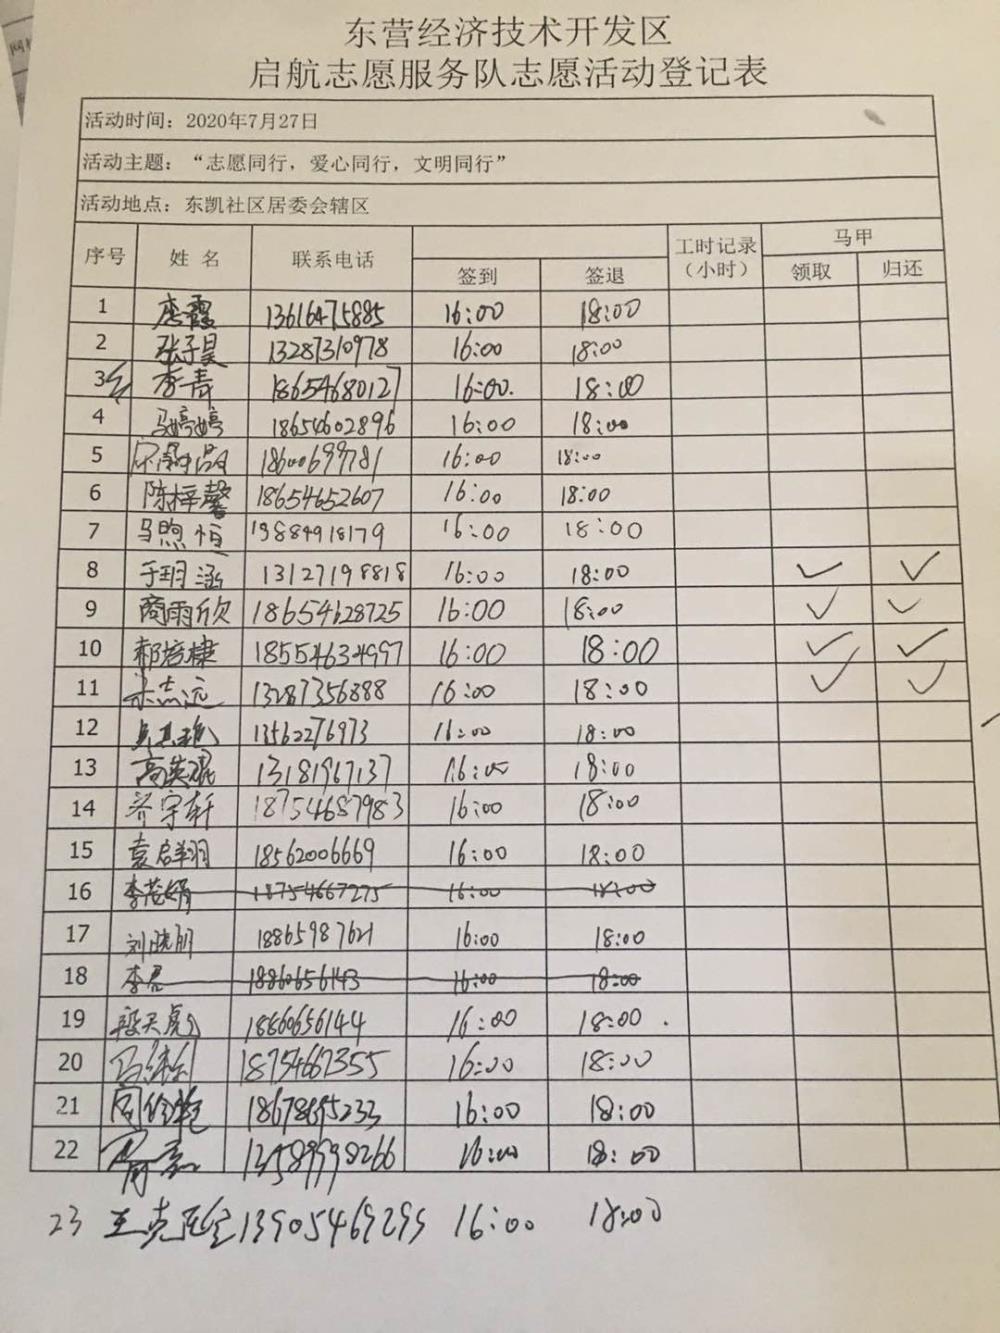 东营经济技术开发区
启航志愿服务队志愿活动登记表
活动时间：2020年7月27日
活动主题：“志愿同行，爱心同行，文明同行”
活动地点：东凯社区居委会辖区
序号 姓名 联系电话 签到 签退 工时记录（小时） 马甲 领取 归还
1 唐霞 13616475885 16:00 18:00
2 张子昊 13287310978 16:00 18:00
3 李青 18654680127 16:00. 18:00
4 马婷婷 18654602896 16:00 18:00
5 18600699781 16:00 18:00
6 陈梓馨 18654652607 16:00 18:00
7 马煦恒 13884918179 16:00 18:00
8 于玥涵 13127198818 16:00 18:00 ✓ ✓
9 商雨欣 18654628725 16:00 18:00 ✓ ✓
10 郝培棣 18554634997 16:00 18:00 ✓ ✓
11 志远 13287356888 16:00 18:00 ✓ ✓
12 13562276973 16:00 18:00
13 高英琨 13181967137 16:00 18:00
14 齐宇轩 18754687983 16:00 18:00
15 袁启翔 18562006669 16:00 18:00
16 李茂娟 18754667275 16:00 18:00
17 刘晓朋 18865987621 16:00 18:00
18 李君 18860656143 16:00 18:00
19 18860656144 16:00 18:00 .
20 18754667355 16:00 18:00
21 18678695233 16:00 18:00
22 13589998266 16:00 18:00
23 王克 13905469295 16:00 18:00